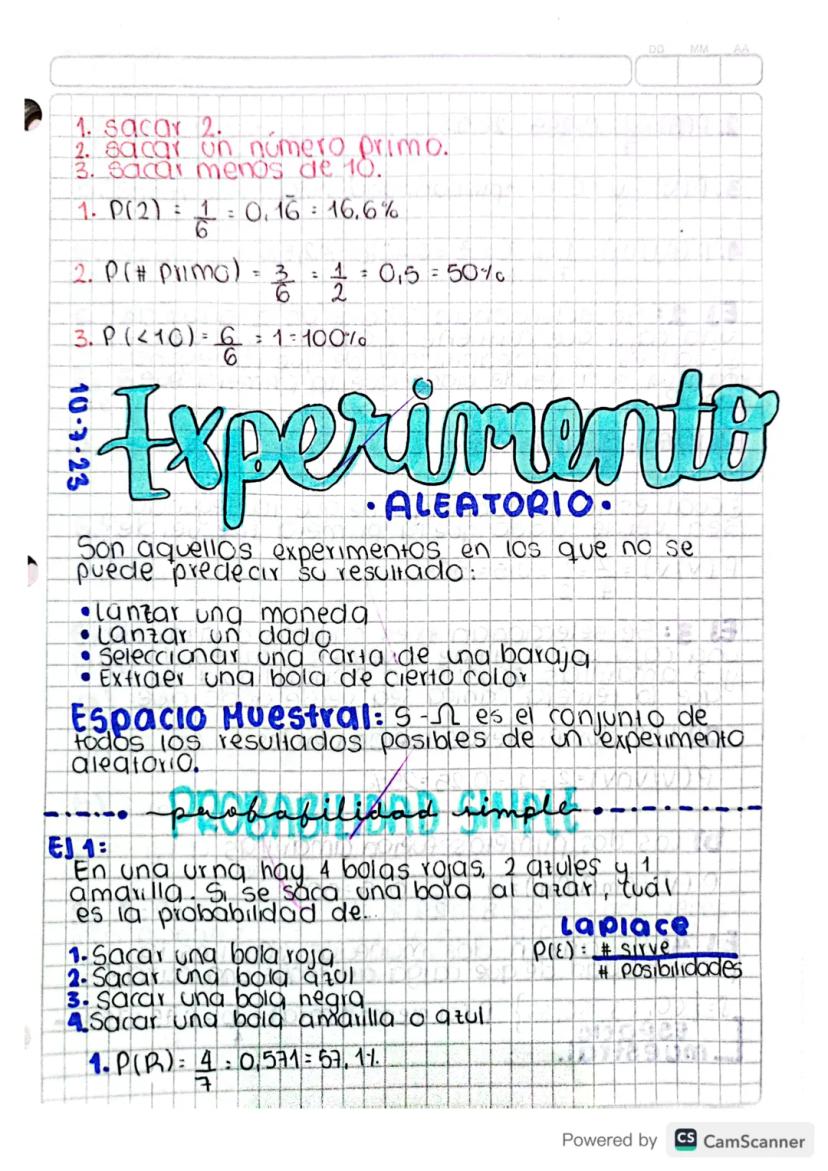 DD MM AA
1. sacar 2.
2. sacar un número primo.
3. sacar menos de 10.
1. P(2) = 1/6 = 0,16̄ = 16,6%
2. P(# primo) = 3/6 = 1/2 = 0,5 = 50%
3. P(<10) = 6/6 = 1 = 100%
10-7-23
Experimento
• ALEATORIO •
Son aquellos experimentos en los que no se
puede predecir su resultado:
• Lanzar una moneda
• Lanzar un dado
• Seleccionar una carta de una baraja
• Extraer una bola de cierto color
Espacio Muestral: S-Ω es el conjunto de
todos los resultados posibles de un experimento
aleatorio.
PROBABILIDAD SIMPLE
probabilidad simple
EJ 1:
En una urna hay 4 bolas rojas, 2 azules y 1
amarilla. Si se saca una bola al azar, cuál
es la probabilidad de...
Laplace
P(E) = # sirve / # posibilidades
1. Sacar una bola roja
2. Sacar una bola azul
3. Sacar una bola negra
4. Sacar una bola amarilla o azul
1. P(R) = 4/7 = 0,571 = 57,1%
Powered by CS CamScanner